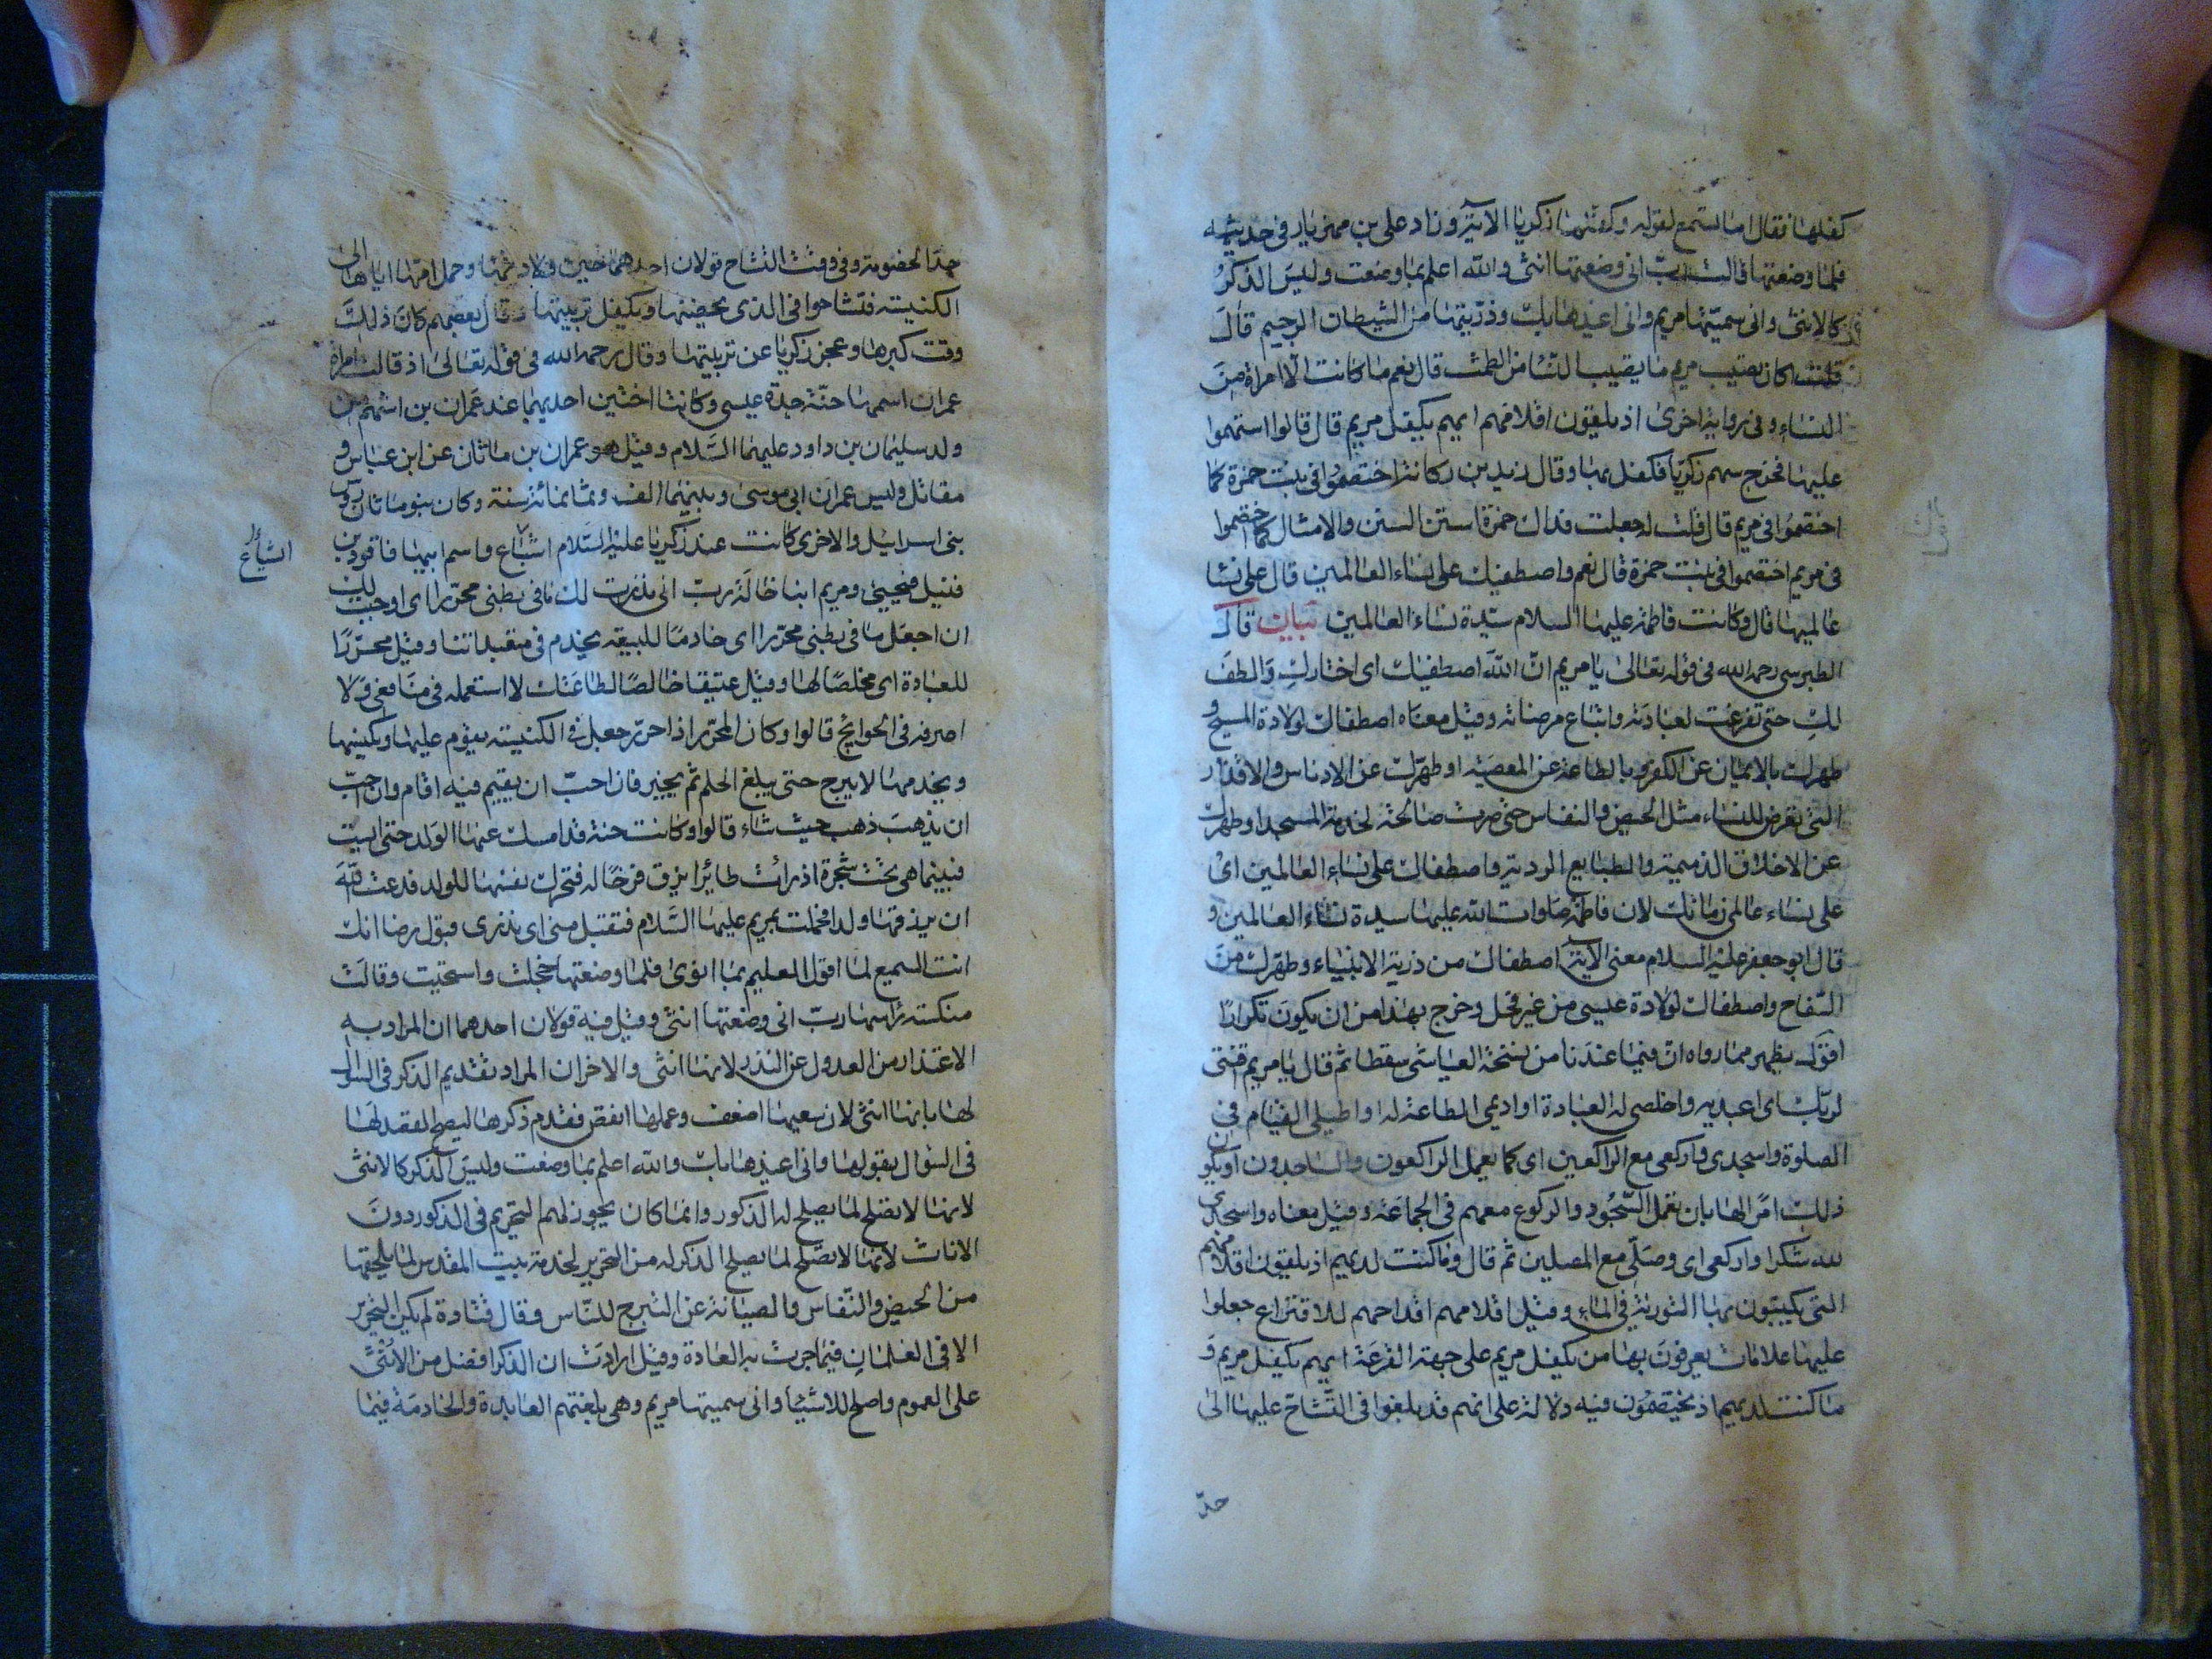 كفلها فقال اما تستمع لقوله وكفلها زكريا الاية وزاد علي بن مهزيار في حديثه
فلما وضعتها قالت رب اني وضعتها انثى والله اعلم بما وضعت وليس الذكر
كالانثى واني سميتها مريم واني اعيذها بك وذريتها من الشيطان الرجيم قال
قلت اكان يصيب مريم ما يصيب النساء من الطمث قال نعم ما كانت الا امراة من
النساء وفي رواية اخرى اذ يلقون اقلامهم ايهم يكفل مريم قال قالوا استهموا
عليها فخرج سهم زكريا فكفل بها وقال زيد بن ركانة اختصموا في بنت حمزة كما
اختصموا في مريم قال قلت له جعلت فداك حمزة استن السنن والامثال كما اختصموا
في مريم اختصموا في بنت حمزة قال نعم واصطفيك على نساء العالمين قال على نساء
عالميها قال وكانت فاطمة عليها السلام سيدة نساء العالمين بيان قال
الطبرسي رحمه الله في قوله تعالى يا مريم ان الله اصطفيك اي اختارك والطف
لك حتى تفرغت لعبادته واتباع مرضاته وقيل معناه اصطفاك لولادة المسيح و
طهرك بالايمان عن الكفر وبالطاعة عن المعصية او طهرك عن الادناس والاقذار
التي تعرض للنساء مثل الحيض والنفاس حتى صرت صالحة لخدمة المسجد او طهرك
عن الاخلاق الذميمة والطبايع الردية واصطفاك على نساء العالمين اي
على نساء عالمي زمانك لان فاطمة صلوات الله عليها سيدة نساء العالمين و
قال ابو جعفر عليه السلام معنى الاية اصطفاك من ذرية الانبياء وطهرك من
السفاح واصطفاك لولادة عيسى من غير فحل وخرج بهذا من ان يكون تكرارا
اقول يظهر مما رواه ان فيما عندنا من نسخة العياشي سقطا ثم قال يا مريم اقنتي
لربك اي اعبديه واخلصي له العبادة او اديمي الطاعة له او اطيلي القيام في
الصلوة واسجدي واركعي مع الراكعين اي كما يعمل الراكعون والساجدون او يكون
ذلك امرا لها بان تعمل السجود والركوع معهم في الجماعة وقيل معناه واسجدي
لله شكرا واركعي اي وصلي مع المصلين ثم قال وما كنت لديهم اذ يلقون اقلامهم
التي يكتبون بها التورية في الماء وقيل اقلامهم اقداحهم للاقتراع جعلوا
عليها علامات يعرفون بها من يكفل مريم على جهة القرعة ايهم يكفل مريم و
ما كنت لديهم اذ يختصمون فيه دلالة على انهم قد بلغوا في التشاح عليها الى
حد
حد الخصومة وفي وقت التشاح قولان احدهما حين ولادتها وحمل امها اياها الى
الكنيسة فتشاحوا في الذي يحضنها ويكفل تربيتها وقال بعضهم كان ذلك
وقت كبرها وعجز زكريا عن تربيتها وقال رحمه الله في قوله تعالى اذ قالت امراة
عمران اسمها حنة جدة عيسى وكانتا اختين احديهما عند عمران بن اشهم من
ولد سليمان بن داود عليهما السلام وقيل هو عمران بن ماثان عن ابن عباس و
مقاتل وليس عمران ابي موسى وبينهما الف وثمانمائة سنة وكان بنو ماثان رؤس
بني اسرايل والاخرى كانت عند زكريا عليه السلام اشباع واسم ابيها فاقود بن
اشياع
قتيل فيحيى ومريم ابنا خالة رب اني نذرت لك ما في بطني محررا اي اوجبت لك
ان اجعل ما في بطني محررا اي خادما للبيعة يخدم في متعبداتنا وقيل محررا
للعبادة اي مخلصا لها وقيل عتيقا خالصا لطاعتك لا استعمله في منافعي ولا
اصرفه في الحوائج قالوا وكان المحرر اذا حرر جعل في الكنيسة يقوم عليها ويكنسها
ويخدمها لا يبرح حتى يبلغ الحلم ثم يخير فان احب ان يقيم فيه اقام وان احب
ان يذهب ذهب حيث شاء قالوا وكانت حنة قد امسك عنها الولد حتى ايست
فبينما هي تحت شجرة اذ رات طائرا يزق فرخا له فتحركت نفسها للولد فدعت الله
ان يرزقها ولدا فحملت بمريم عليها السلام فتقبل مني اي نذري قبول رضا انك
انت السميع لما اقول العليم بما انوي فلما وضعتها خجلت واستحيت وقالت
منكسة راسها رب اني وضعتها انثى وقيل فيه قولان احدهما ان المراد به
الاعتذار من العدول عن النذر لانها انثى والاخر ان المراد تقديم الذكر في السؤال
لها بانها انثى لان سعيها اضعف وعملها انقص فقدم ذكرها ليصح القصد لها
في السؤال بقولها واني اعيذها بك والله اعلم بما وضعت وليس الذكر كالانثى
لانها لا تصلح لما يصلح له الذكور وانما كان يجوز لهم التحرير في الذكور دون
الاناث لانها لا تصلح لما يصلح الذكر له من التحرير لخدمة بيت المقدس لما يلحقها
من الحيض والنفاس والصيانة عن التبرج للناس وقال قتادة لم يكن التحرير
الا في الغلمان فيما جرت به العادة وقيل ارادت ان الذكر افضل من الانثى
على العموم واصلح للاشياء واني سميتها مريم وهي بلغتهم العابدة والخادمة فيما